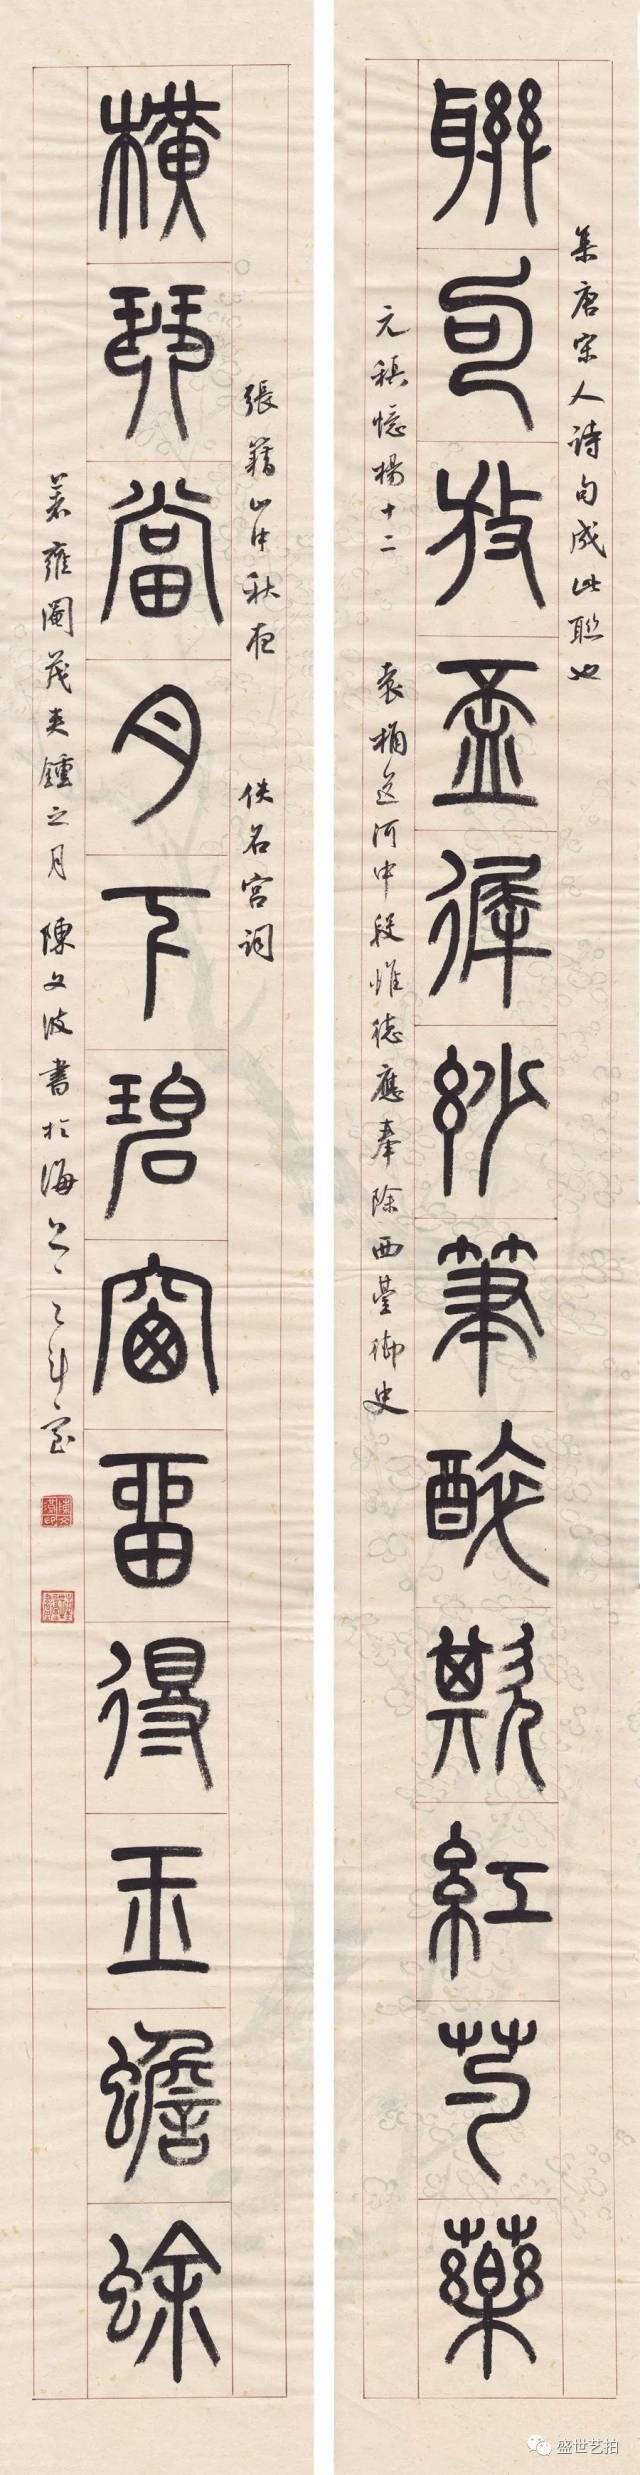 集唐宋人詩句成此聯也
聯句放盃遲紗筆醉欺紅芍藥
元稹憶楊十二 袁桷送河中段惟德應奉除西臺御史
張籍山中秋夜 佚名宮詞
橫琴當月下碧窗留得玉蟾蜍
著雍閹茂夾鍾之月 陳文波書於海上之斗室
陳文波印
盛世艺拍